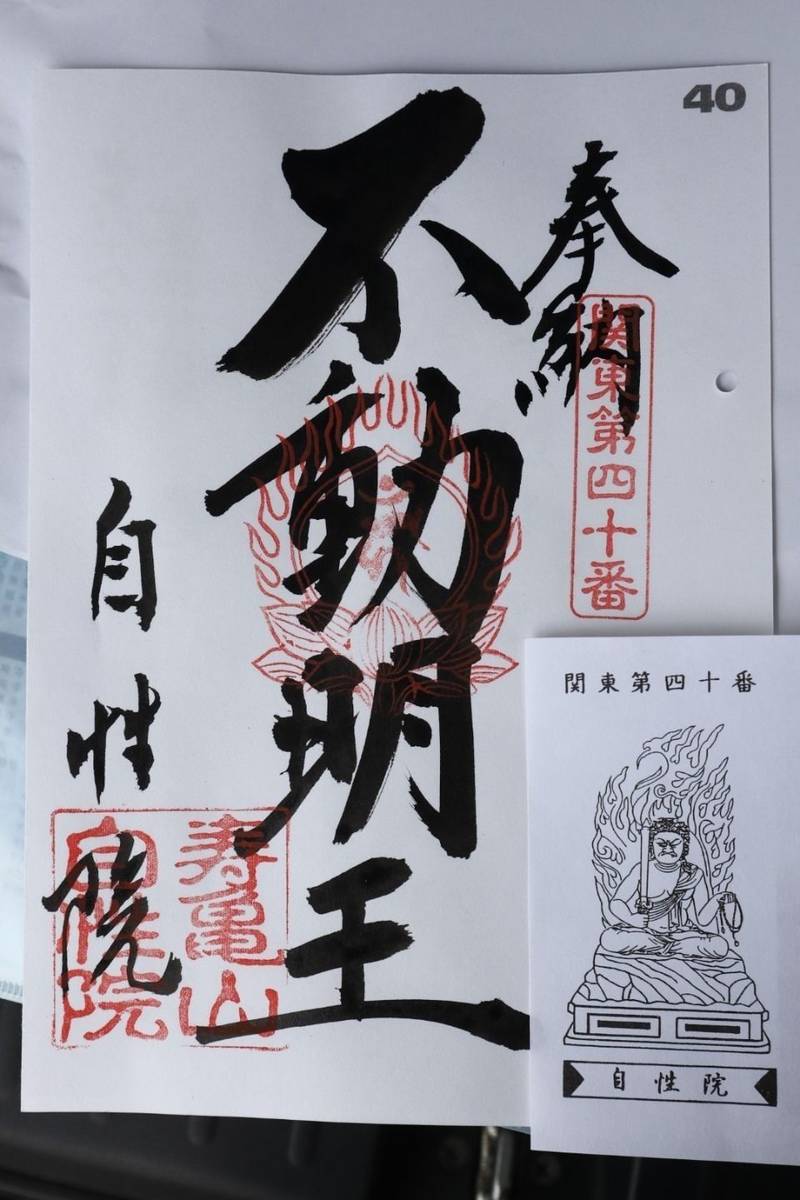 40
奉納
関東第四十番
不動明王
自性院
寿亀山
自性院
関東第四十番
自性院